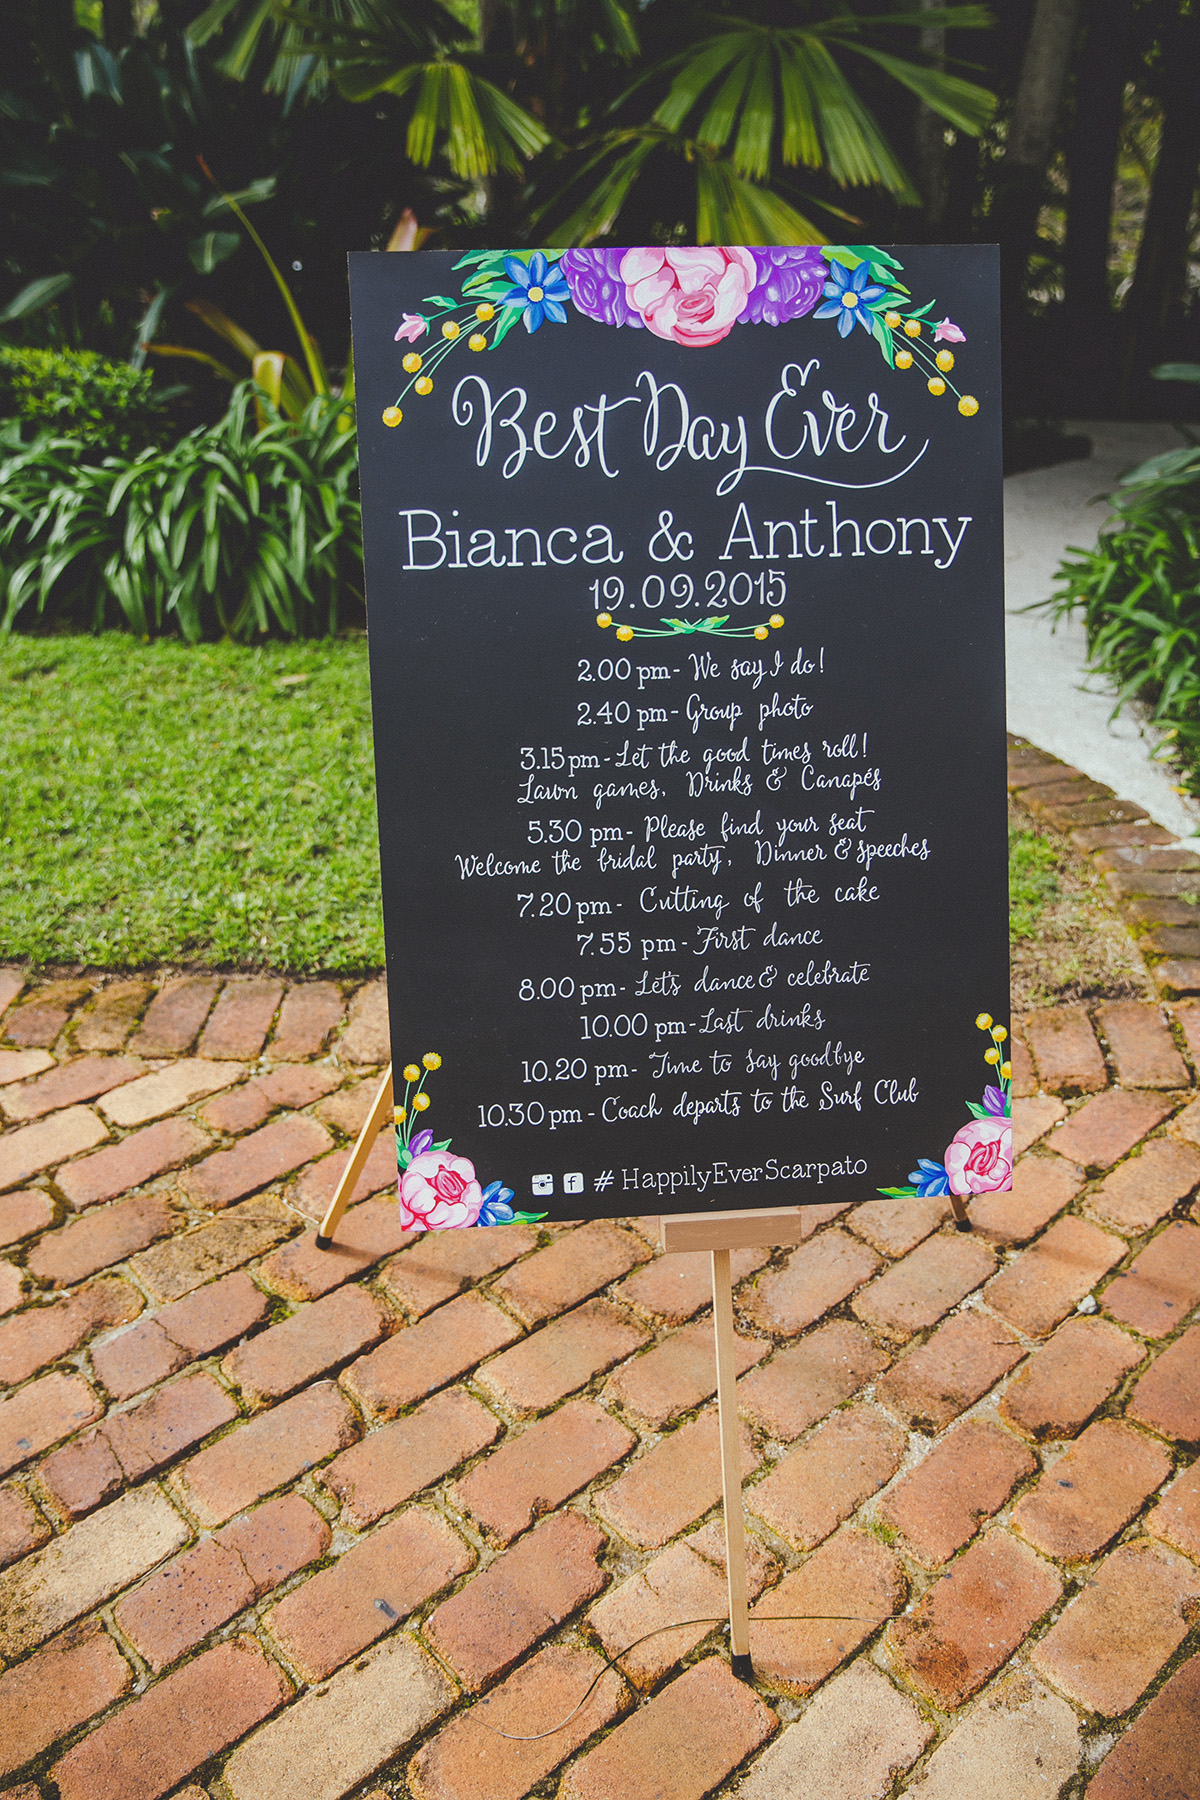 Best Day Ever
Bianca & Anthony
19.09.2015
2.00 pm - We say I do!
2.40 pm - Group photo
3.15 pm - Let the good times roll!
Lawn games, Drinks & Canapés
5.30 pm - Please find your seat
Welcome the bridal party, Dinner & speeches
7.20 pm - Cutting of the cake
7.55 pm - First dance
8.00 pm - Let's dance & celebrate
10.00 pm - Last drinks
10.20 pm - Time to say goodbye
10.30 pm - Coach departs to the Surf Club
f # HappilyEverScarpato